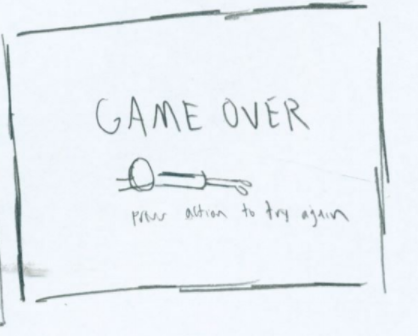 GAME OVER
press action to try again